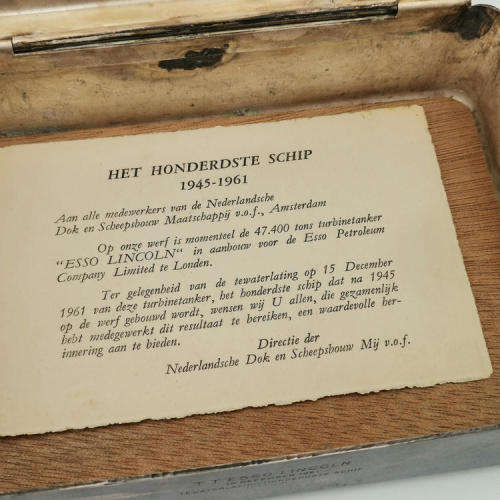 HET HONDERDSTE SCHIP
1945-1961
Aan alle medewerkers van de Nederlandsche
Dok en Scheepsbouw Maatschappij v.o.f., Amsterdam
Op onze werf is momenteel de 47.400 tons turbinetanker
"ESSO LINCOLN" in aanbouw voor de Esso Petroleum
Company Limited te Londen.
Ter gelegenheid van de tewaterlating op 15 December
1961 van deze turbinetanker, het honderdste schip dat na 1945
op de werf gebouwd wordt, wensen wij U allen, die gezamenlijk
hebt medegewerkt dit resultaat te bereiken, een waardevolle her-
innering aan te bieden.
Directie der
Nederlandsche Dok en Scheepsbouw Mij v.o.f.
T.T. ESSO LINCOLN